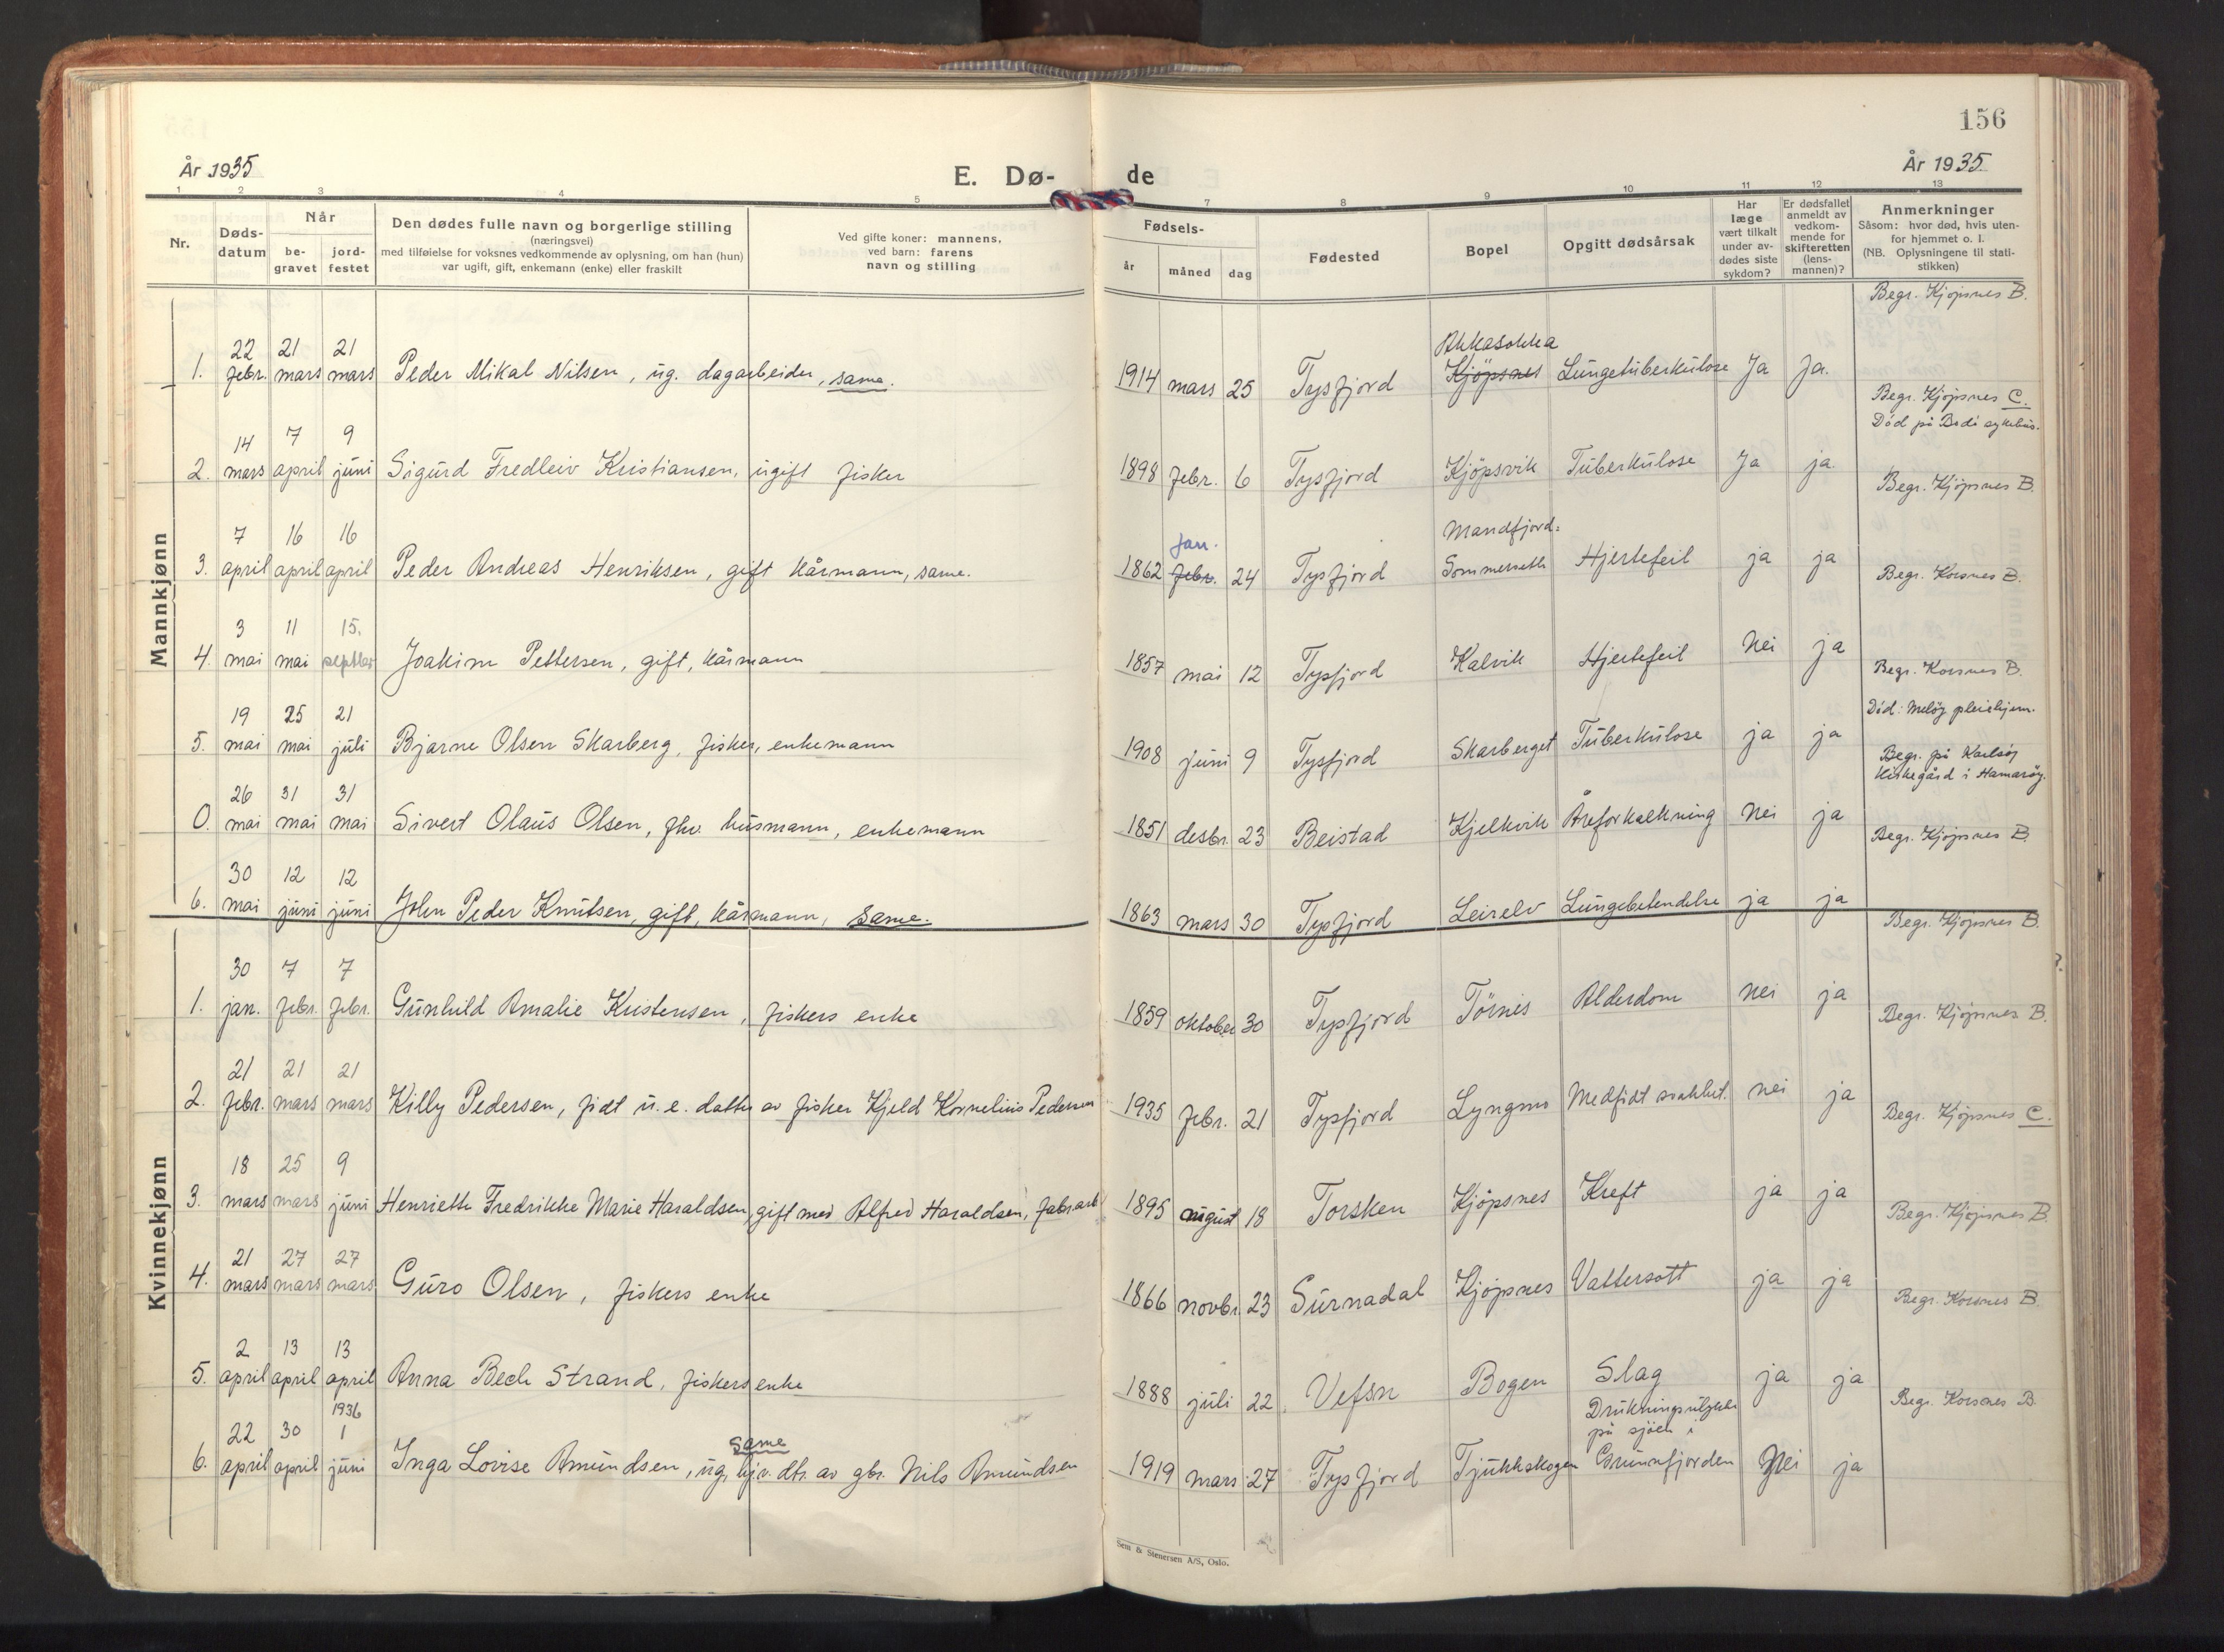 156
År 1935
E. Dø-
de
År 1935
1 2 3 4 5 7 8 9 10 11 12 13
Nr.
Døds-
datum
Når
be-
gravet
jord-
festet
Den dødes fulle navn og borgerlige stilling
(næringsvei)
med tilføielse for voksnes vedkommende av oplysning, om han (hun)
var ugift, gift, enkemann (enke) eller fraskilt
Ved gifte koner: mannens,
ved barn: farens
navn og stilling
Fødsels-
år måned dag
Fødested
Bopel
Opgitt dødsårsak
Har
læge
vært tilkalt
under av-
dødes siste
sykdom?
Er dødsfallet
anmeldt av
vedkom-
mende for
skifteretten
(lens-
mannen)?
Anmerkninger
Såsom: hvor død, hvis uten-
for hjemmet o. l.
(NB. Oplysningene til stati-
stikken)
Mannkjønn
Begr. Kjøpsnes B.
22 21 21 Akkasokka
1. febr. mars mars Peder Mikal Nilsen, ug. dagarbeider, same. 1914 mars 25 Tysfjord Kjöpsnes Lungetuberkulose Ja Ja.
Begr. Kjöpsnes C.
Död på Bodö sykehus.
14 7 9
2. mars april juni Sigurd Fredleiv Kristiansen, ugift fisker 1898 febr. 6 Tysfjord Kjöpsvik Tuberkulose Ja ja.
Begr. Kjöpsnes B.
7 16 16 jan. Mandfjord=
3. april april april Peder Andreas Henriksen, gift kårmann, same. 1862 febr. 24 Tysfjord Sommerseth Hjertefeil ja ja
Begr. Korsnes B.
3 11 15.
4. mai mai septbr Joakim Pettersen, gift, kårmann 1857 mai 12 Tysfjord Kalvik Hjertefeil Nei ja
Begr. Korsnes B.
Död: Melöy pleiehjem.
19 25 21
5. mai mai juli Bjarne Olsen Skarberg, fisker, enkemann 1908 juni 9 Tysfjord Skarberget Tuberkulose ja ja
Begr. på Karlsöy
kirkegård i Hamaröy.
26 31 31
0. mai mai mai Sivert Olaus Olsen, fhv. husmann, enkemann 1851 desbr. 23 Beistad Kjelkvik Åreforkalkning Nei ja
Begr. Kjöpsnes B.
30 12 12
6. mai juni juni John Peder Knutsen, gift, kårmann, same. 1863 mars 30 Tysfjord Leirelv Lungebetendelse ja ja
Kvinnekjønn
Begr. Kjöpsnes B.
30 7 7
1. jan. febr. febr. Gunhild Amalie Kristensen, fiskers enke 1859 oktober 30 Tysfjord Törnes Alderdom nei ja
Begr. Kjöpsnes B.
21 21 21
2. febr. mars mars Killy Pedersen, födt u. e. datter av fisker Kjeld Kornelius Pedersen 1935 febr. 21 Tysfjord Lyngmo Medfödt svakhet. nei ja
Begr. Kjöpsnes C.
18 25 9
3. mars mars juni Henriette Fredrikke Marie Haraldsen, gift med Alfred Haraldsen, fabr.arb 1895 august 18 Torsken Kjöpsnes Kreft ja ja
Begr. Kjöpsnes B.
21 27 27
4. mars mars mars Guro Olsen, fiskers enke 1866 novbr. 23 Surnadal Kjöpsnes Vattersott ja ja
Begr. Korsnes B.
2 13 13
5. april april april Anna Bech Strand, fiskers enke 1888 juli 22 Vefsn Bogen Slag ja ja
Begr. Korsnes B.
1936
22 30 1 same Drukningsulykke
på sjöen i
6. april april juni Inga Lovise Amundsen, ug, hjv. dtr. av gbr. Nils Amundsen 1919 mars 27 Tysfjord Tjukkskogen Grunnfjorden Nei ja
Sem & Stenersen A/S, Oslo.